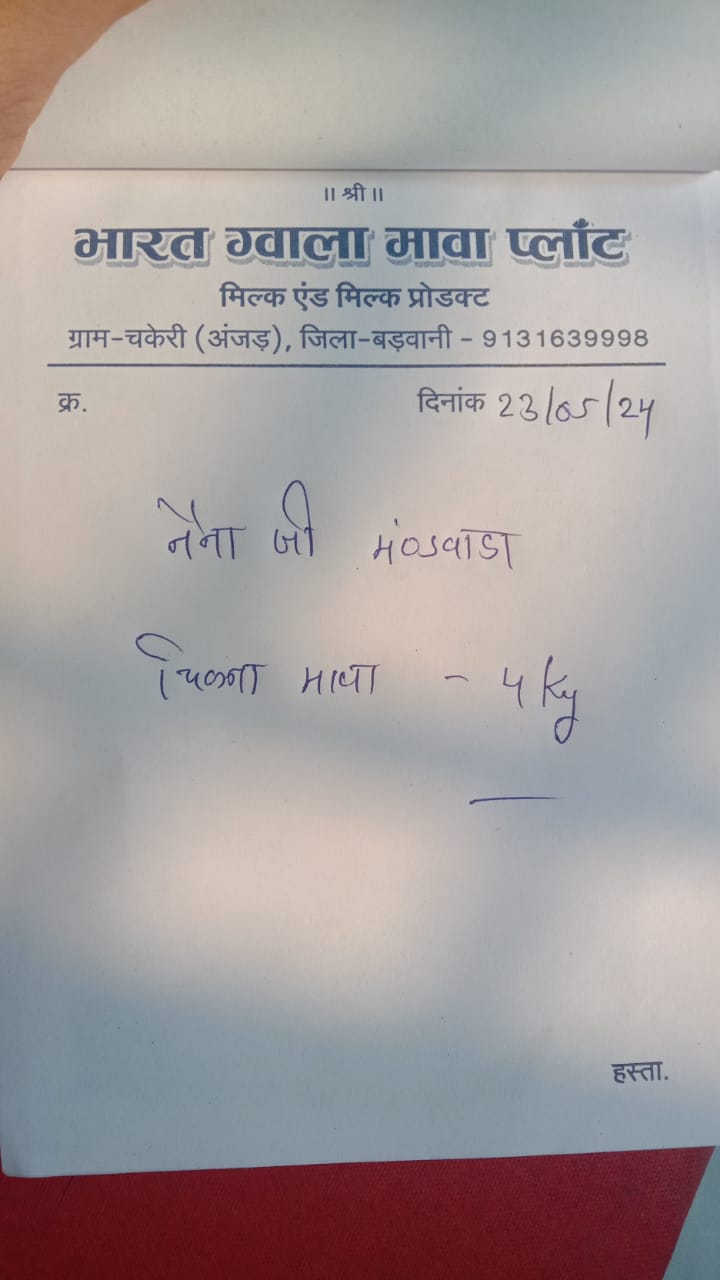 ॥ श्री ॥
भारत ग्वाला मावा प्लाँट
मिल्क एंड मिल्क प्रोडक्ट
ग्राम-चकेरी (अंजड़), जिला-बड़वानी - 9131639998
क्र. दिनांक 23/05/24
नैना जी मंडवाडा
चिकना मावा - 4 Kg
हस्ता.